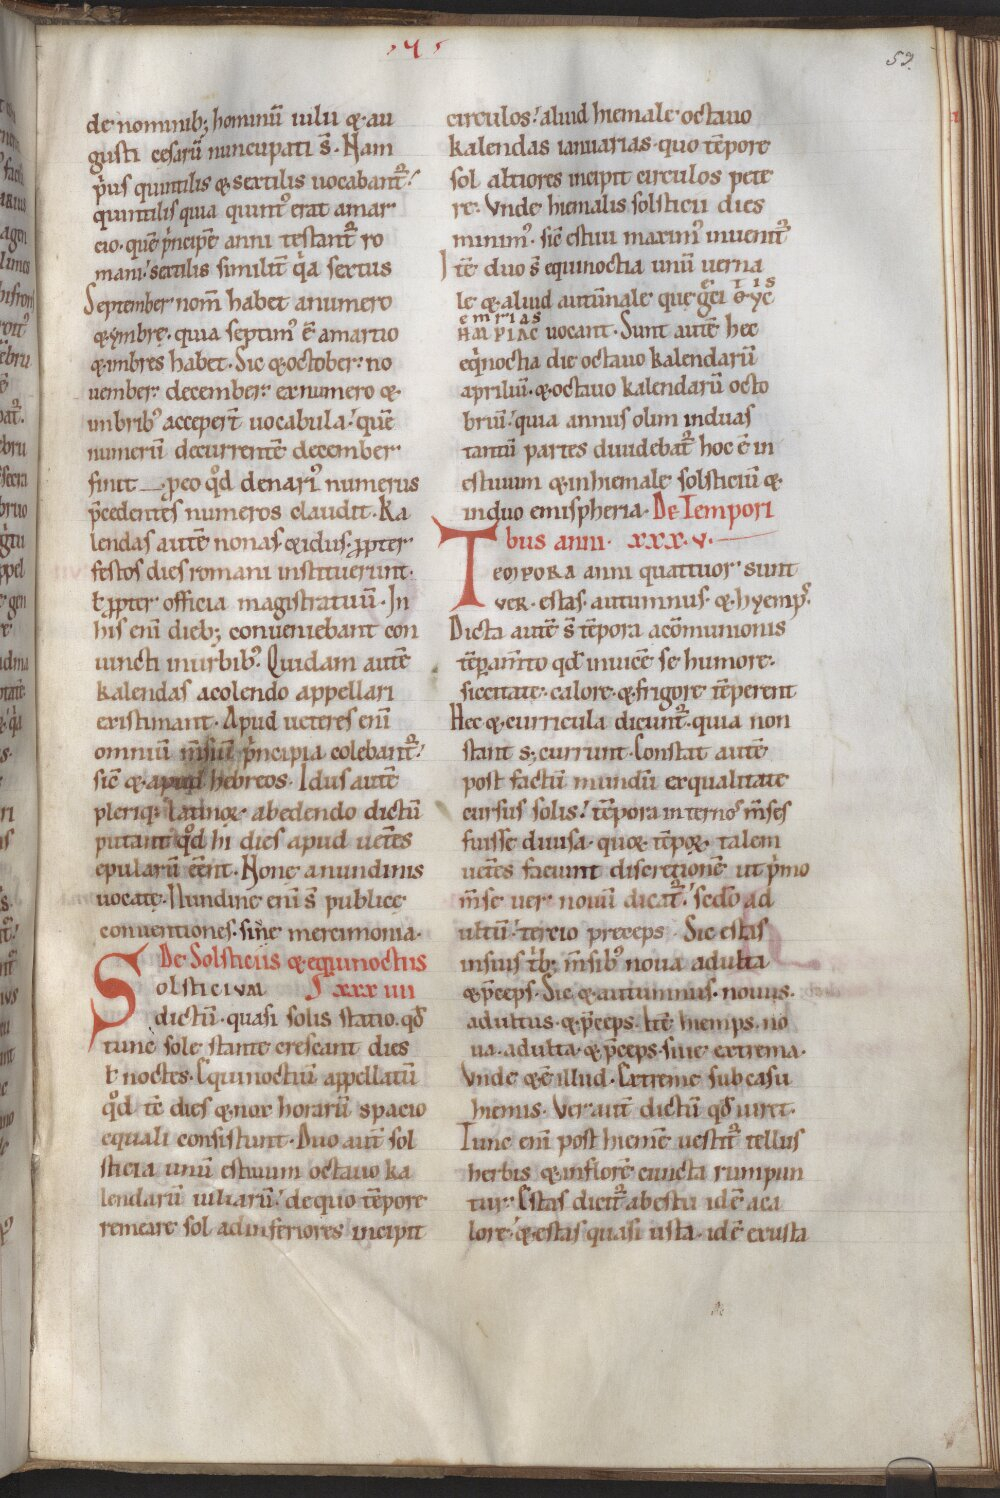 · V ·
59.
de nominib; hominū iulii & au
gusti cesarū nuncupati s̄. Nam
p̍us quintilis & sextilis uocabant̄᷑.
quintilis quia quintꝰ erat amar
cio. quē p̍ncipē anni testant̄᷑ ro
mani. sextilis similit̄ q̍a sextus
September nom̄ habet anumero
& ymbrę. quia septimꝰ ē amartio
& imbres habet. Sic & october. no
uember. december. exnumero &
imbribꝰ accepert̄ uocabula. quē
numerū decurrentē december
finit ꝓeo qͦd denariꝰ numerus
p̄cedentes numeros claudit. Ka
lendas autē nonas & idus. ꝓpter
festos dies romani instituerunt.
ł ꝓpter officia magistratuū. In
his enī dieb; conueniebant con
iuncti inurbibꝰ. Quidam autē
kalendas acolendo appellari
existimant. Apud ueteres enī
omniū m̄siū p̍ncipia colebant̄᷑.
sic̄ & apud hebreos. Idus autē
pleriq; latinoꝝ abedendo dictū
putant qͦd hi dies apud uet̄es
epularū eēnt. Nonę anundinis
uocatę. Nundine enī s̄ publicę
conuentiones. siue mercimonia.
De Solsticiis & equinoctiis
Solsticium xxx iiii
dictū. quasi solis statio. qđ
tunc sole stante crescant dies
ł noctes. Equinoctiū appellatū
qͦd tē dies & nox horarū spacio
equali consistunt. Duo aut̄ sol
sticia unū estiuum octauo ka
lendarū iuliarū. dequo tēpore
remeare sol adinferiores incipit
circulos. aliud hiemale octauo
kalendas ianuarias. quo tēpore
sol altiores incipit circulos pete
re. Vnde hiemalis solsticii dies
minimꝰ. sic̄ estiui maximꝰ inuenit̄᷑
Itē duo s̄ equinoctia unū uerna
le & aliud autūnale que g̅ci ΘYC
is
emrias
HAIPIAC uocant. Sunt autē hec
eq̍noctia die octauo kalendarū
apriliū. & octauo kalendarū octo
briū. quia annus olim induas
tantū partes diuidebat̄᷑ hoc ē in
estiuum & inhiemale solsticiū &
induo emispheria. De Tempori
bus anni. xxx.v.
Tempora anni quattuor sunt
ver. estas. autumnus. & hyempꝰ.
Dicta autē s̄ tēpora acōmunionis
tēpam̄to qđ inuicē se humore.
siccitate. calore. & frigore tēperent
Hec & curricula dicunt̄᷑. quia non
stant s; currunt. Constat autē
post factū mundū exqualitate
cursus solis. tēpora internoˢ m̄ses
fuisse diuisa. quoꝝ tēpoꝝ talem
uet̄es faciunt discretionē ut p̍mo
m̄se ver nouū dicat̄᷑. secđo ad
ultū. tercio preceps. Sic estas
insuis t̍b; m̄sibꝰ noua adulta
& p̄ceps. Sic & autumnus. nouus.
adultus. & p̄ceps. Itē hiemps. no
ua. adulta. & p̄ceps. siue extrema.
Vnde & ē illud. Extreme subcasu
hiemis. Ver aut̄ dictū qđ uiret.
Tunc enī post hiemē uestit̄᷑ tellus
herbis & inflorē cuncta rumpun
tur. Estas dicit̄᷑ abestu id ē aca
lore. & estas quasi usta. id ē exusta